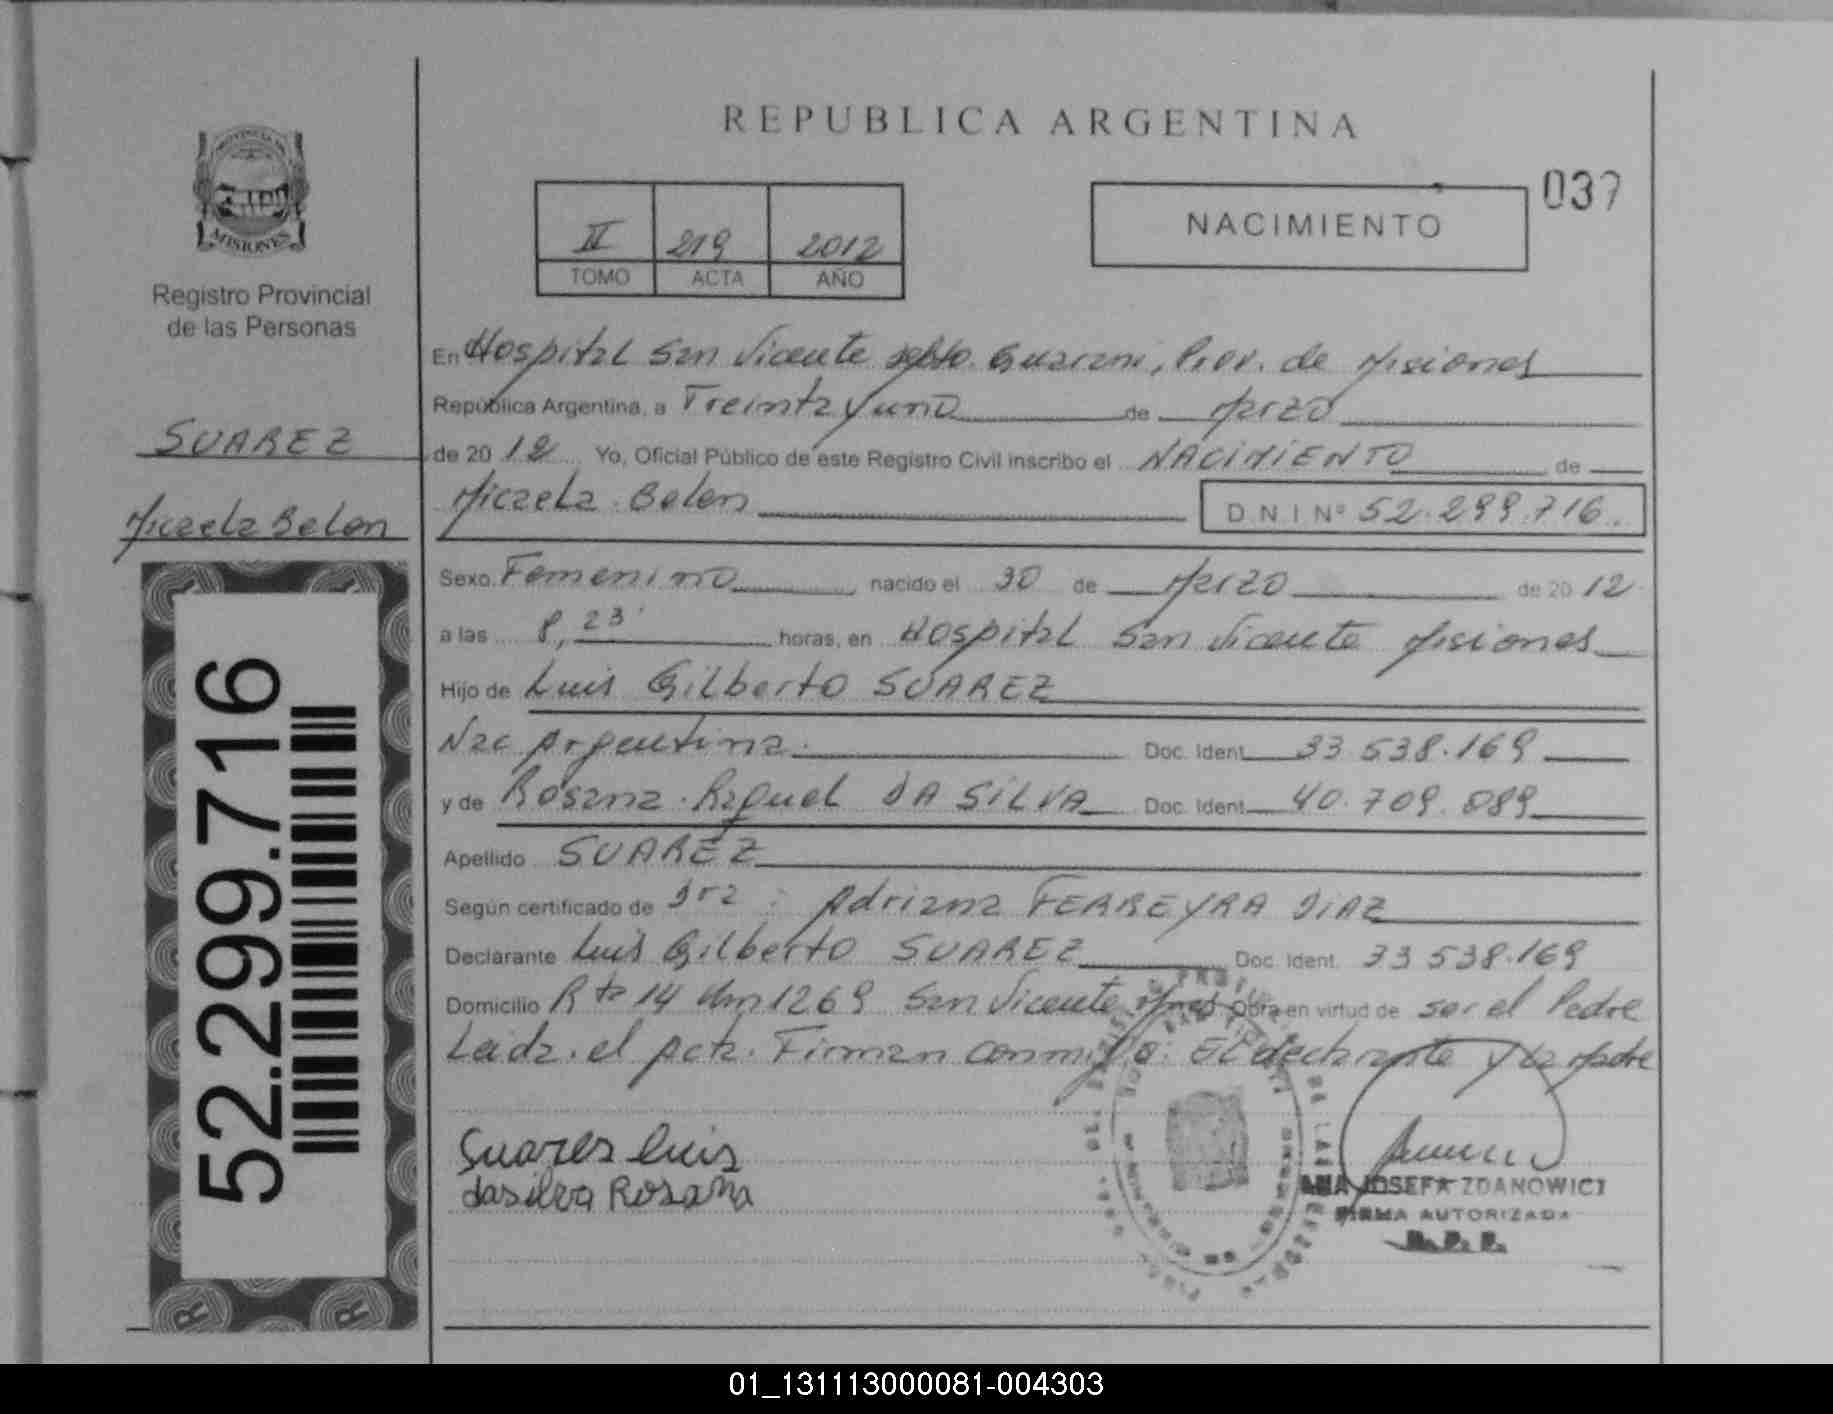 REPUBLICA ARGENTINA
PROVINCIA DE
MISIONES
Registro Provincial
de las Personas
II 219 2012
TOMO ACTA AÑO
NACIMIENTO
037
SUAREZ
Micaela Belen
52.299.716
En Hospital San Vicente Dpto. Guarani, Prov. de Misiones
República Argentina, a Treinta y uno de Marzo
de 2012 Yo, Oficial Público de este Registro Civil inscribo el NACIMIENTO de
Micaela Belen D.N.I Nº 52.299.716.
Sexo Femenino nacido el 30 de Marzo de 2012
a las 8,23' horas, en Hospital San Vicente Misiones
Hijo de Luis Gilberto SUAREZ
Nac Argentina. Doc. Ident. 33.538.169
y de Rosana Raquel DA SILVA Doc. Ident. 40.709.089
Apellido SUAREZ
Según certificado de Dra: Adriana FERREYRA DIAZ
Declarante Luis Gilberto SUAREZ Doc. Ident. 33 538.169
Domicilio Rta 14 Km 1269 San Vicente Mnes Obra en virtud de ser el Padre
Leida el Acta. Firman conmigo: El declarante y la Madre
Suares luis
dasilva Rosana
ANA JOSEFA ZDANOWICZ
FIRMA AUTORIZADA
R. P. P.
01_131113000081-004303